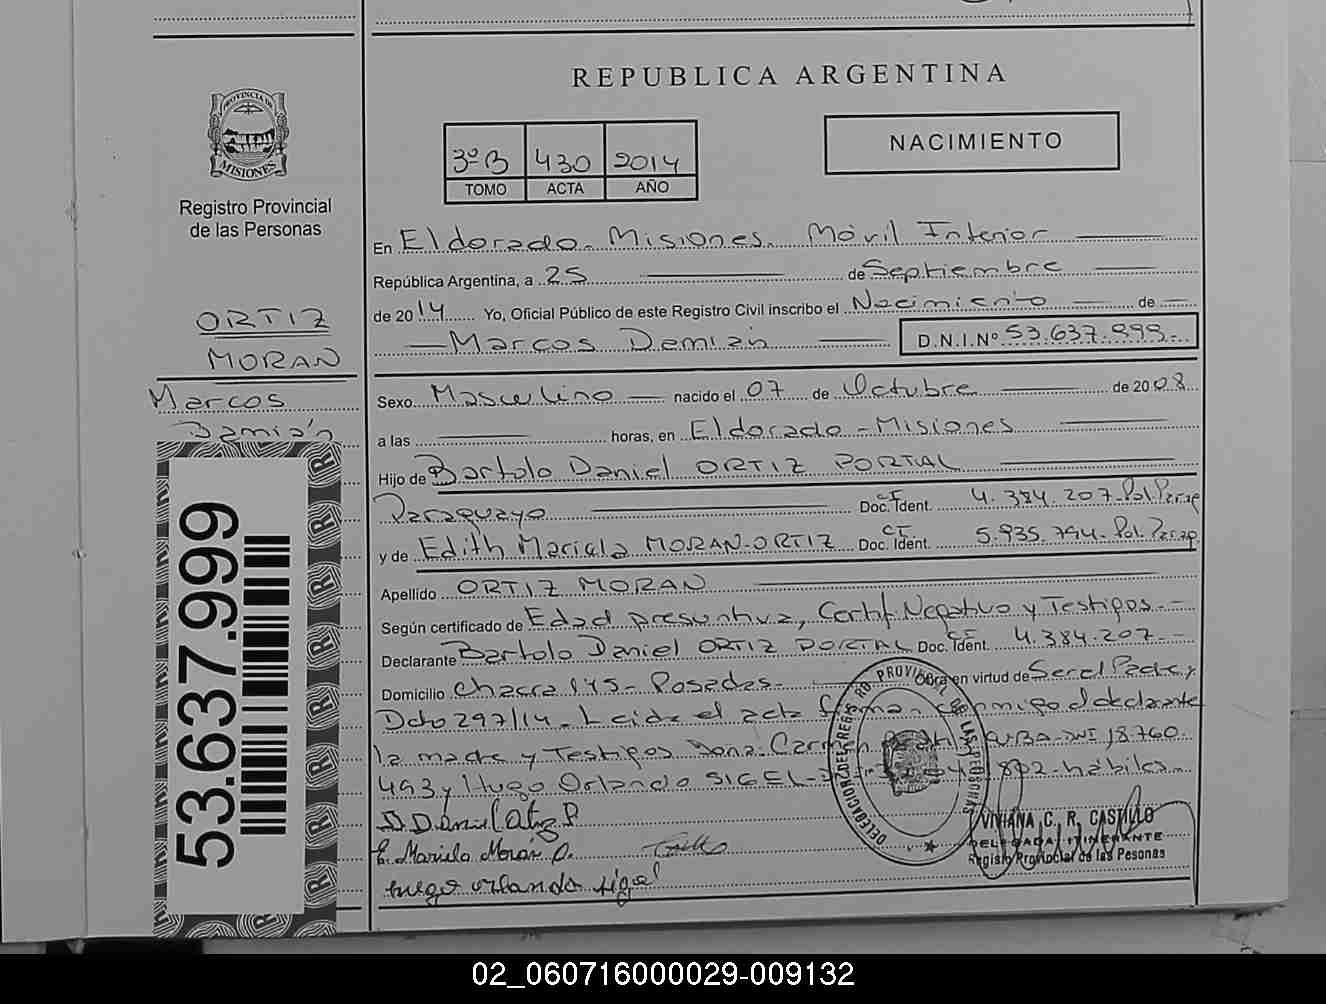 REPUBLICA ARGENTINA
PROVINCIA DE
MISIONES
Registro Provincial
de las Personas
3º B 430 2014
TOMO ACTA AÑO
NACIMIENTO
ORTIZ
MORAN
Marcos
Damián
53.637.999
En Eldorado - Misiones. Móvil Interior
República Argentina, a 25 de Septiembre
de 2014 Yo, Oficial Público de este Registro Civil inscribo el Nacimiento de
Marcos Demián D.N.I.Nº 53.637.999.-
Sexo Masculino nacido el 07 de Octubre de 2008
a las horas, en Eldorado - Misiones
Hijo de Bartolo Daniel ORTIZ PORTAL
Paraguayo C.I. Doc. Ident. 4.384.207 Pol. Parag
y de Edith Mariela MORAN ORTIZ C.I. Doc. Ident. 5.935.794 - Pol. Parag
Apellido ORTIZ MORAN
Según certificado de Edad presuntiva, Certif. Negativo y Testigos.-
Declarante Bartolo Daniel ORTIZ PORTAL C.I. Doc. Ident. 4.384.207.-
Domicilio Chacra 145 - Posadas.- Obra en virtud de Ser el Padre y
Dcto 297/14 - Leida el acta firman conmigo el declarante
la madre y Testigos Dona: Carmen DNI 18.760.
493 y Hugo Orlando SIGEL - 802 - hábiles.-
B. Daniel Ortiz P
E. Mariela Morán O.
Hugo Orlando Sigel
DELEGACION DEL REGISTRO PROVINCIAL DE LAS PERSONAS
VIVIANA C. R. CASTILLO
DELEGADA ITINERANTE
Registro Provincial de las Pesonas
02_060716000029-009132